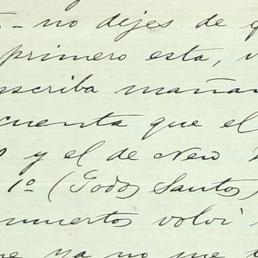 - no dejes de
primero esta,
escriba mañan
cuenta que el
y el de New
1º (Todos Santos)
muertos volvi
ya no me